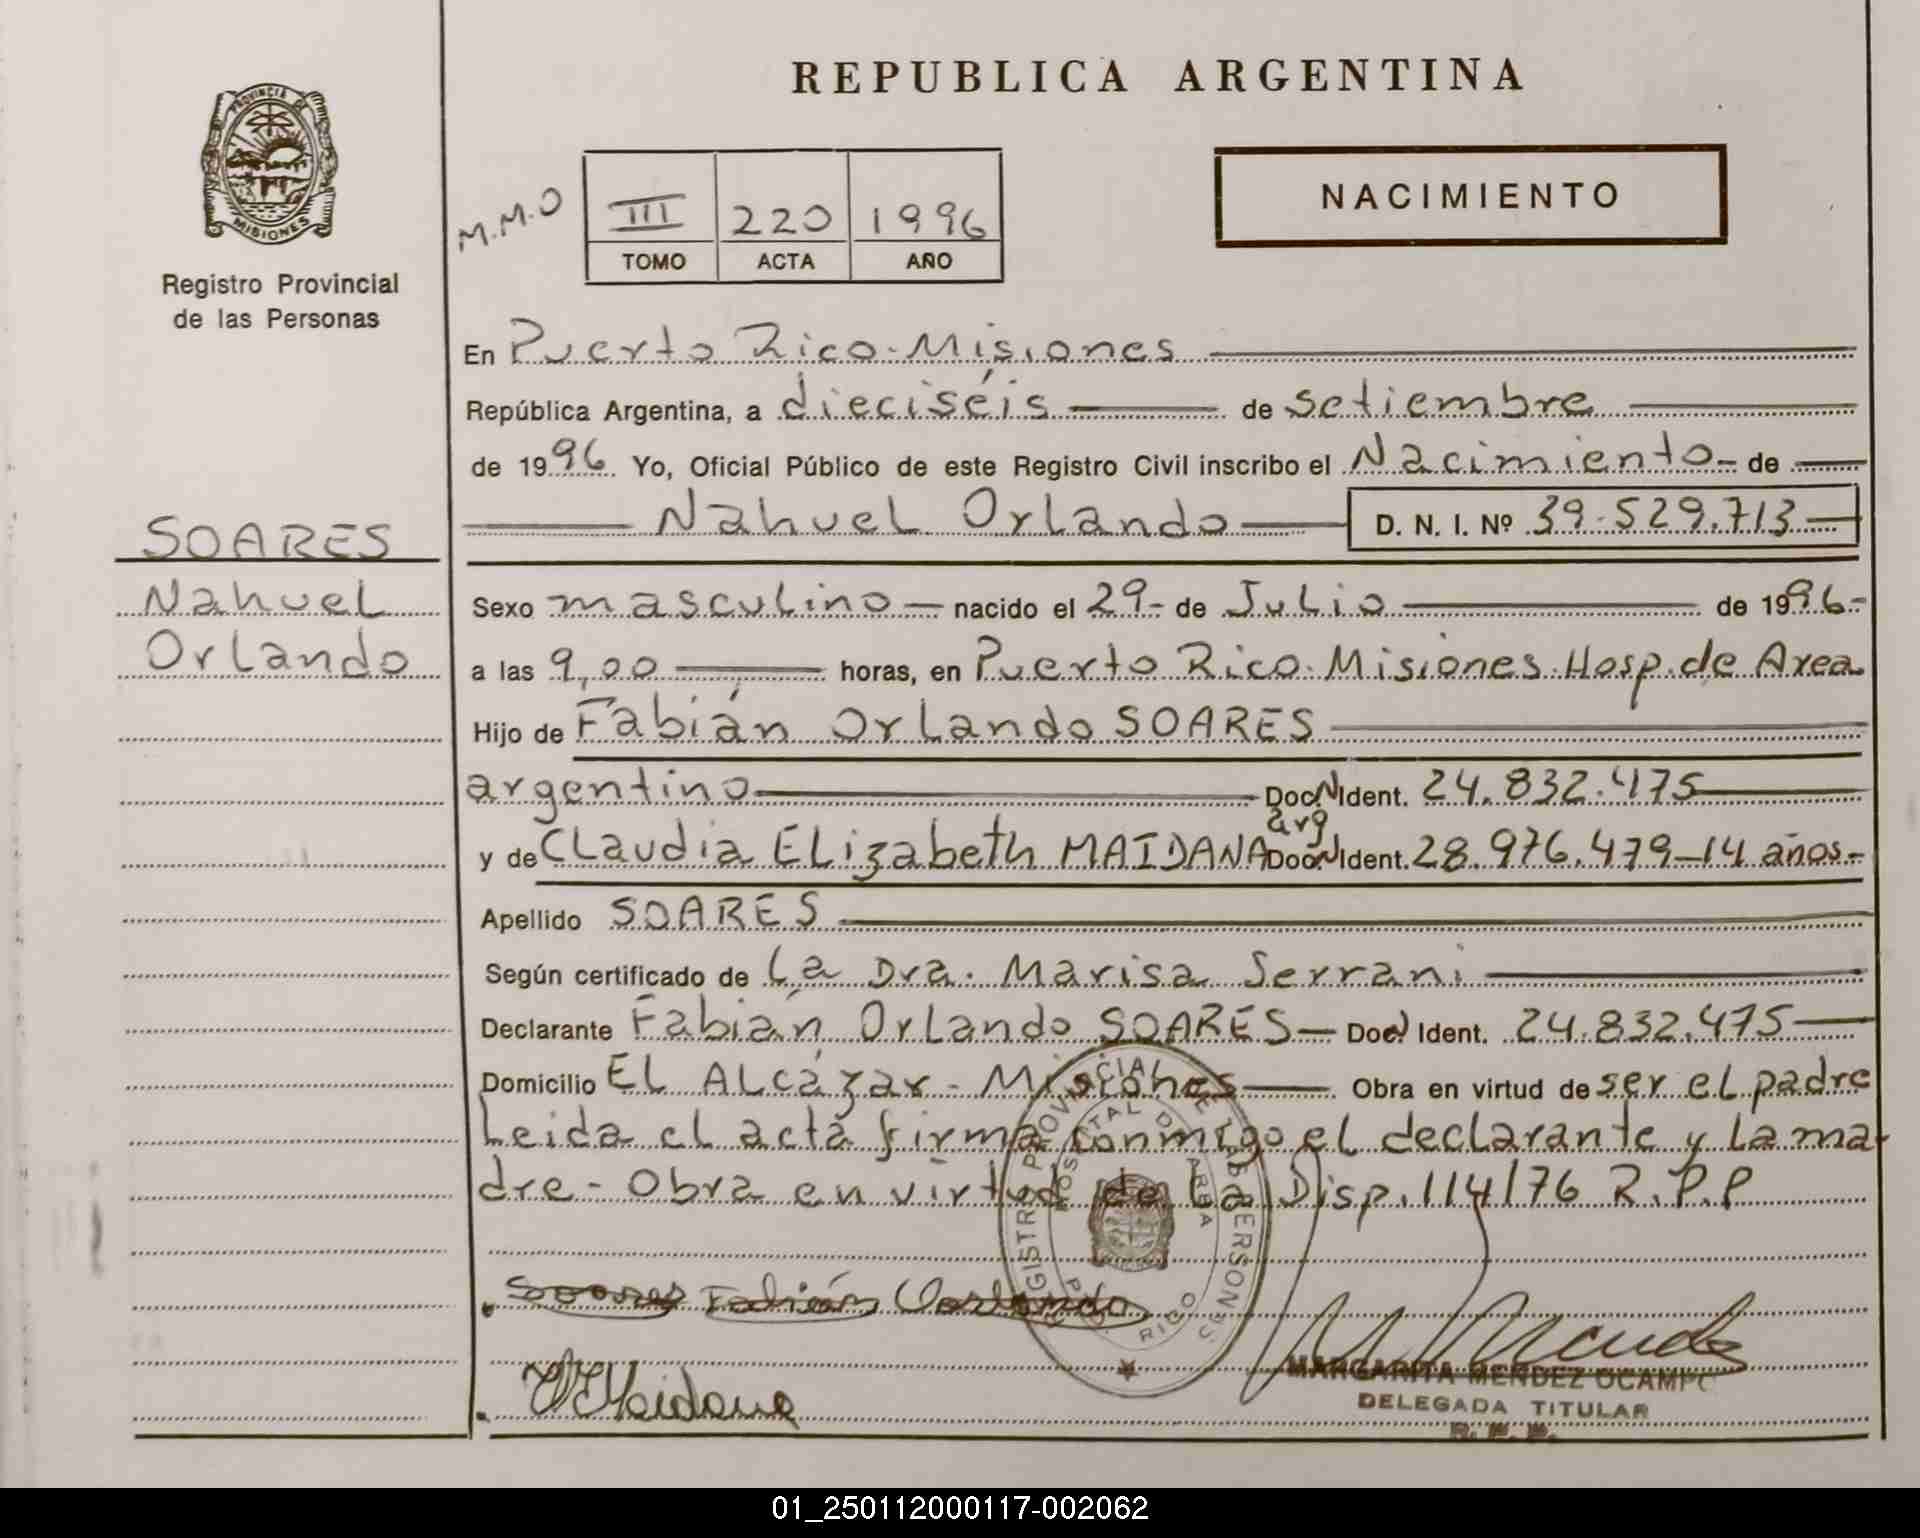 PROVINCIA DE
MISIONES
Registro Provincial
de las Personas
SOARES
Nahuel
Orlando
REPUBLICA ARGENTINA
M.M.O
III 220 1996
TOMO ACTA AÑO
NACIMIENTO
En Puerto Rico-Misiones
República Argentina, a dieciséis de setiembre
de 1996 Yo, Oficial Público de este Registro Civil inscribo el Nacimiento- de
Nahuel Orlando D. N. I. Nº 39.529.713
Sexo masculino nacido el 29- de Julio de 1996-
a las 9,00 horas, en Puerto Rico-Misiones-Hosp.de Area
Hijo de Fabián Orlando SOARES
argentino Doc.N Ident. 24.832.475
arg
y de Claudia Elizabeth MAIDANA Doc.N Ident. 28.976.479-14 años.-
Apellido SOARES
Según certificado de la Dra. Marisa Serrani
Declarante Fabián Orlando SOARES Doc.N Ident. 24.832.475
Domicilio El Alcázar - Misiones Obra en virtud de ser el padre
Leida el acta firma conmigo el declarante y la ma-
dre- Obra en virtud de la Disp.114/76 R.P.P
REGISTRO PROVINCIAL DE LAS PERSONAS
HOSPITAL DE AREA
PTO. RICO
Soares Fabián Orlando
Maidana
MARGARITA MENDEZ OCAMPO
DELEGADA TITULAR
R. P. P.
01_250112000117-002062